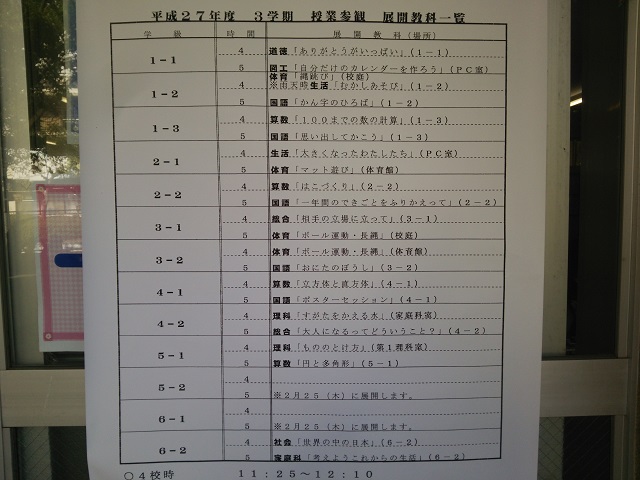 平成27年度 3学期 授業参観 展開教科一覧
学級 時間 展開教科(場所)
1-1 4 道徳「ありがとうがいっぱい」(1-1)
5 図工「自分だけのカレンダーを作ろう」(PC室)
1-2 4 体育「縄跳び」(校庭)
※雨天時生活「むかしあそび」(1-2)
5 国語「かん字のひろば」(1-2)
1-3 4 算数「100までの数の計算」(1-3)
5 国語「思い出してかこう」(1-3)
2-1 4 生活「大きくなったわたしたち」(PC室)
5 体育「マット遊び」(体育館)
2-2 4 算数「はこづくり」(2-2)
5 国語「一年間のできごとをふりかえって」(2-2)
3-1 4 総合「相手の立場に立って」(3-1)
5 体育「ボール運動・長縄」(校庭)
3-2 4 体育「ボール運動・長縄」(体育館)
5 国語「おにたのぼうし」(3-2)
4-1 4 算数「立方体と直方体」(4-1)
5 国語「ポスターセッション」(4-1)
4-2 4 理科「すがたをかえる水」(家庭科室)
5 総合「大人になるってどういうこと?」(4-2)
5-1 4 理科「もののとけ方」(第1理科室)
5 算数「円と多角形」(5-1)
5-2 4
5 ※2月25(木)に展開します。
6-1 4
5 ※2月25(木)に展開します。
6-2 4 社会「世界の中の日本」(6-2)
5 家庭科「考えようこれからの生活」(6-2)
○4校時 11:25~12:10